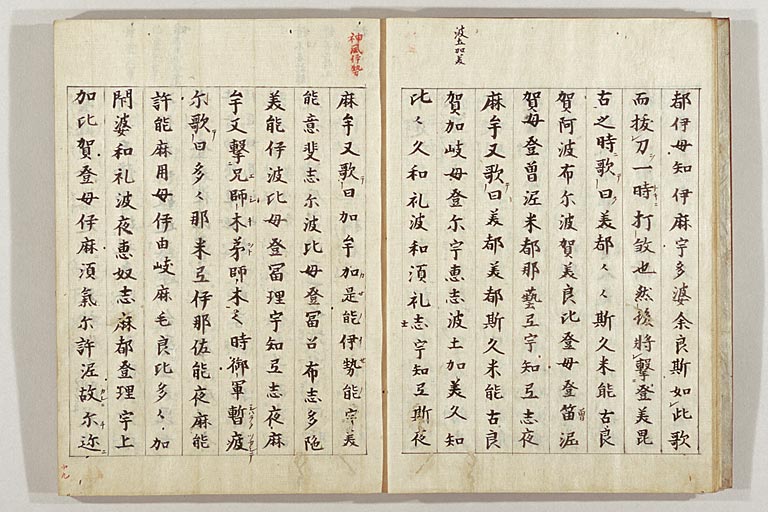 波土加美
都伊毋知伊麻宇多婆余良斯如此歌
而拔刀一時打敓也然後將擊登美毘
古之時歌曰美都〻〻斯久米能古良
賀阿波布尔波賀美良比登毋登笛泥
賀毋登曽泥米都那藝弖宇知弖志夜
麻牟又歌曰美都美都斯久米能古良
賀加岐毋登尔宇恵志波土加美久知
比〻久和礼波和湏礼志宇知弖斯夜
神風伊勢
麻牟又歌曰加牟加是能伊勢能宇美
能意斐志尔波比毋登冨呂布志多陁
美能伊波比毋登冨理宇知弖志夜麻
牟又擊兄師木弟師木之時御軍暫疲
尓歌曰多〻那米弖伊那佐能夜麻能
許能麻用毋伊由岐麻毛良比多〻加
閇婆和礼波夜恵奴志麻都登理宇上
加比賀登毋伊麻湏氣尓許泥故尓迩